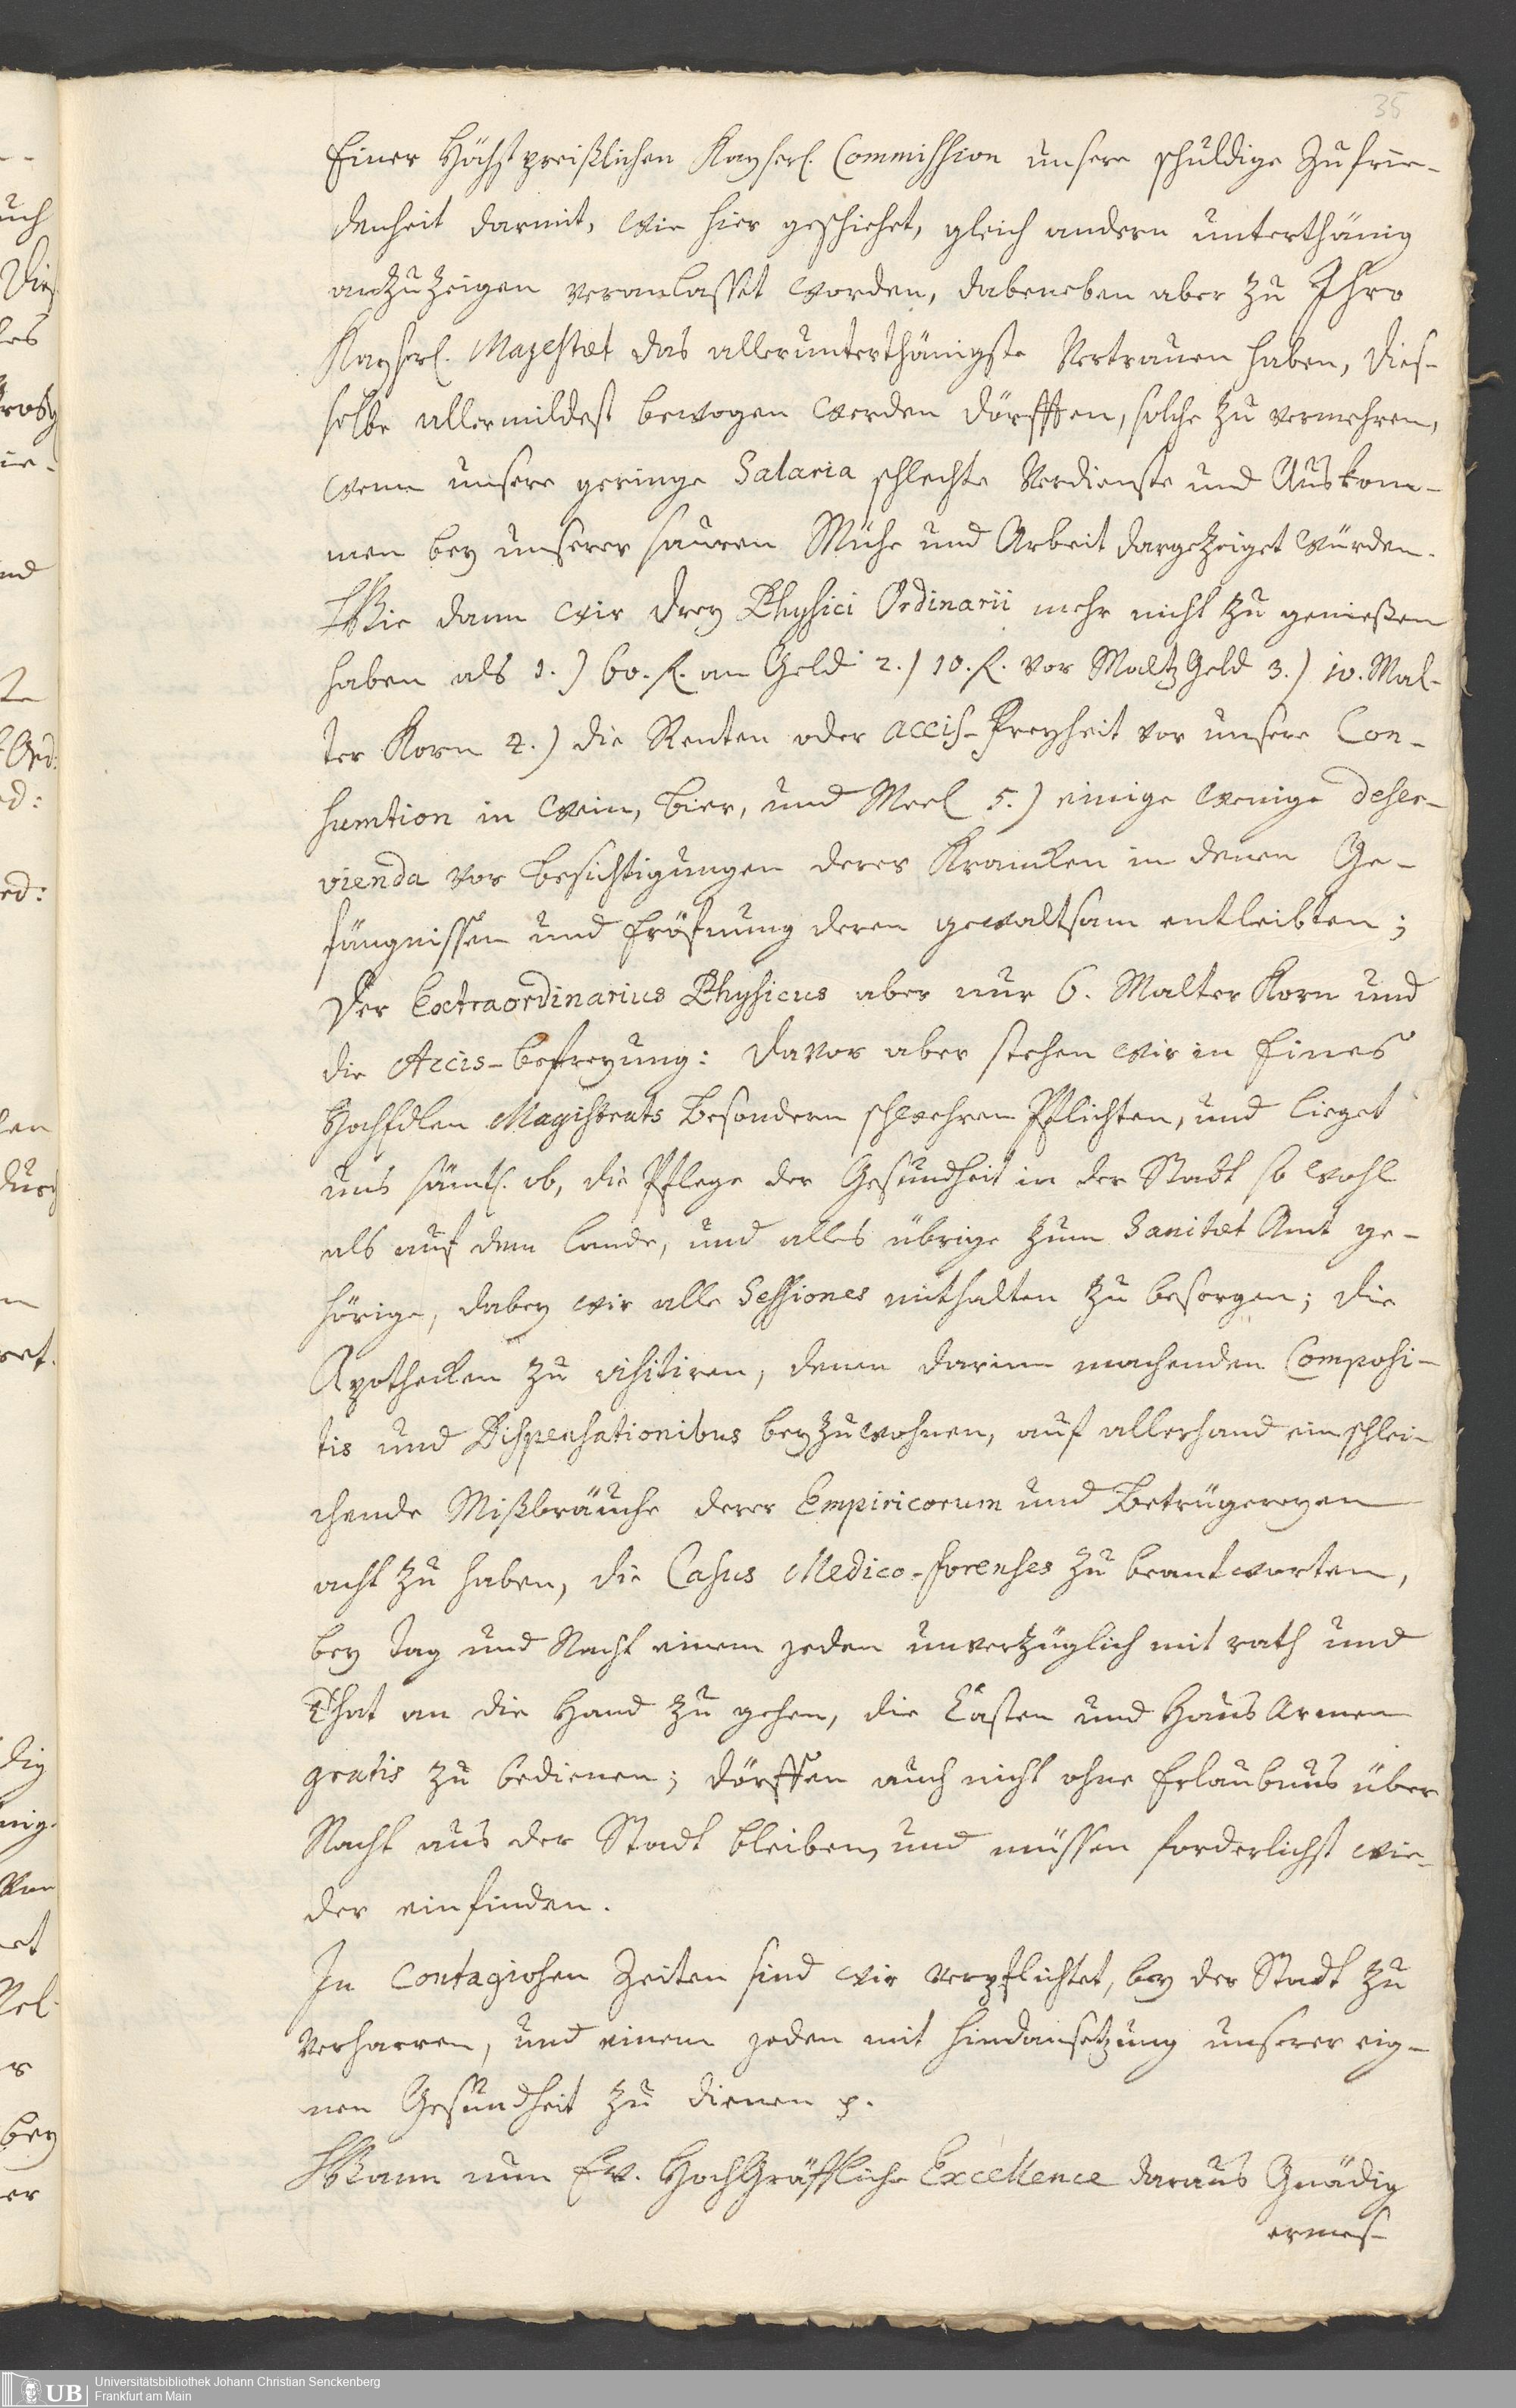 35
Einer Höchstpreißlichen Kayserl. Commission unsere schuldige Zufrie-
denheit darmit, wie hier geschiehet, gleich andern unterthänig
anzuzeigen veranlasset worden, dabeneben aber zu Ihro
Kayserl. Majestæt das allerunterthänigste Vertrauen haben, dies-
selbe allermildest bewogen werden dörfften, solche zu vermehren,
wenn unsere geringe Salaria schlechte Verdienste und Auskom-
men bey unserer sauren Mühe und Arbeit dargezeiget würden.
Wie dann wir drey Physici Ordinarii mehr nicht zu genießen
haben als 1.) 60. f. an Geld 2.) 10. f. vor Maltz Geld 3.) 10. Mal-
ter Korn 4.) die Renten oder accis-Freyheit vor unsere Con-
sumtion in Wein, Bier, und Meel 5.) einige wenige deser-
vienda vor Besichtigungen derer Krancken in denen Ge-
fängnissen und Eröfnung deren gewaltsam entleibten;
Der Extraordinarius Physicus aber nur 6. Malter Korn und
die Accis-Befreyung: Davor aber stehen wir in Eines
HochEdlen Magistrats besondern schwehren Pflichten, und lieget
uns sämtl. ob, die Pflege der Gesundheit in der Stadt so wohl
als auf dem Lande, und alles übrige zum Sanitæt Amt ge-
hörige, dabey wir alle Sessiones mithalten zu besorgen; die
Apothecken zu visitiren, denen darinn machenden Composi-
tis und Dispensationibus beyzuwohnen, auf allerhand einschlei-
chende Mißbräuche derer Empiricorum und Betrügereyen
acht zu haben, die Casus Medico-forenses zu beantworten,
bey Tag und Nacht einem jeden unverzüglich mit rath und
That an die Hand zu gehen, die Casten und Haus Armen
gratis zu bedienen; dörffen auch nicht ohne Erlaubnus über
Nacht aus der Stadt bleiben, und müssen forderlichst wie-
der einfinden.
In Contagiosen Zeiten sind wir verpflichtet, bey der Stadt zu
verharren, und einem jeden mit hindansetzung unserer eig-
nen Gesundheit zu dienen p.
Wann nun Ew. HochGräffliche Excellence daraus Gnädig
ermes-
UB Universitätsbibliothek Johann Christian Senckenberg
Frankfurt am Main